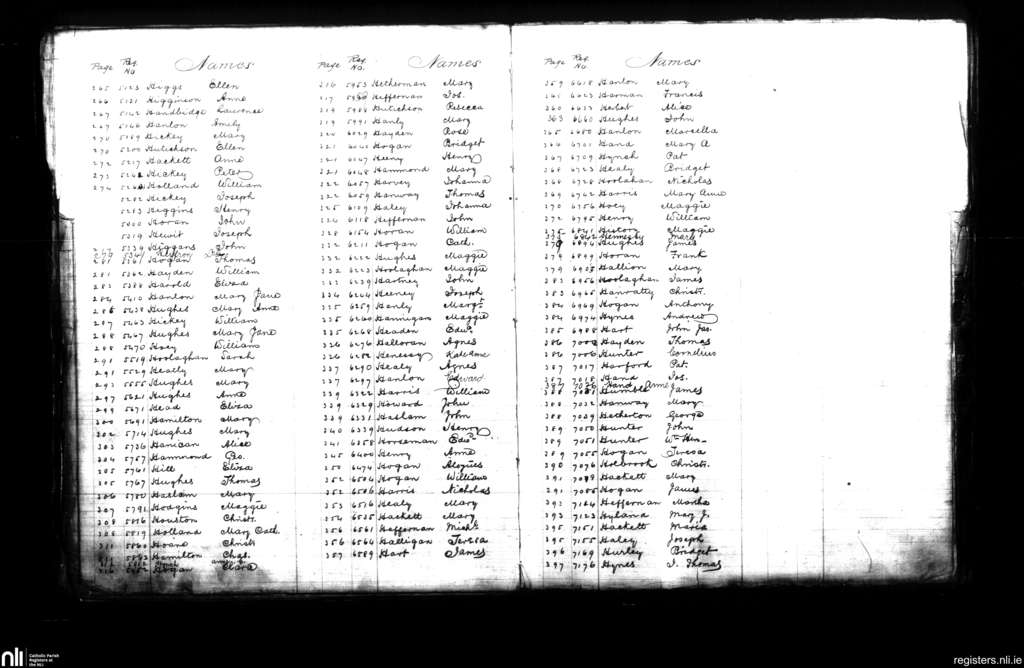 Page Reg. No Names
265 5123 Higgs Ellen
266 5131 Higginson Anne
267 5142 Handbidge Laurence
269 5166 Hanlon Emily
270 5189 Hickey Mary
270 5200 Hutchison Ellen
272 5217 Hackett Anne
273 Hickey Peter
274 Holland William
5282 Hickey Joseph
5283 Higgins Henry
Horan John
5319 Hewit Joseph
5339 Higgans John
Hogan Thomas
281 5362 Hayden William
283 5386 Harold Eliza
284 5410 Hanlon Mary Jane
286 5638 Hughes Mary Anne
287 5463 Hickey William
288 5467 Hughes Mary Jane
288 5470 Hoey William
291 5519 Hoolaghan Sarah
291 5529 Healy Mary
293 5555 Hughes Mary
297 5621 Hughes Anne
299 5671 Head Eliza
300 5691 Hamilton Mary
302 5714 Hughes Mary
303 5736 Hanican Alice
304 5757 Hammond Geo.
305 5761 Hill Eliza
305 5767 Hughes Thomas
306 5780 Haslam Mary
307 5791 Hodgins Maggie
308 5816 Houston Christ.
308 5819 Holland Mary Cath.
311 5860 Hoane Christ
311 5863 Hamilton Chas.
Hogan Clara
Page Reg. No. Names
316 5953 Hetherman Mary
317 Heffernan Jos.
319 5988 Hutchison Rebecca
319 5991 Hanly Mary
320 6029 Hayden Rose
321 6040 Hogan Bridget
321 6047 Heeny Henry
321 6048 Hammond Mary
322 6057 Harvey Johanna
322 6059 Hanway Thomas
325 6109 Haley Johanna
326 6118 Heffernan John
328 6156 Horan William
332 6211 Hogan Cath.
332 6222 Hughes Maggie
332 6223 Hoolaghan Maggie
333 6239 Hartney John
334 6244 Heeney Joseph
335 6259 Hanly Margt.
335 6260 Hannigan Maggie
335 6268 Headen Edwd.
336 6276 Halloran Agnes
336 6282 Henessy Kate Anne
337 6290 Healy Agnes
337 6297 Hanlon Edward
339 6322 Harris William
339 6329 Howard John
339 6331 Haslam John
340 6339 Hudson Henry
341 6358 Horseman Edwd.
345 6400 Henry Anne
350 6474 Hogan Aloyius
352 6504 Hogan William
352 6506 Harris Nicholas
353 6516 Healy Mary
354 6535 Hackett Mary
356 6561 Heffernan Michl.
356 6564 Halligan Teresa
357 6589 Hart James
Page Reg. No. Names
359 6618 Hanlon Mary
361 6623 Harman Francis
360 6637 Herbet Alice
363 6660 Hughes John
365 6680 Hanlon Marcella
366 6701 Hand Mary A
367 6709 Hynch Pat
368 6723 Healy Bridget
368 6728 Hoolahan Nicholas
369 6742 Harris Mary Anne
370 6756 Hoey Maggie
372 6795 Henry William
375 6841 History Maggie
6862 Hennessy Mary
379 6894 Hughes James
379 6899 Horan Frank
Hallion Mary
383 6956 Hoolaghan James
383 6965 Hanratty Christ.
384 6969 Hogan Anthony
384 6974 Hynes Andrew
385 6988 Hart John Jos.
386 7000 Hayden Thomas
386 7006 Hunter Cornelius
387 7017 Harford Pat.
387 7018 Hand Jos.
387 7026 Hand Anne
388 7031 James
388 7032 Hanway Mary
388 7039 Hetherton George
389 7050 Hunter John
389 7051 Hunter Wm Hen—
389 7055 Hogan Teresa
390 7076 Holbrook Christ.
391 Hackett Mary
391 7085 Hogan James
393 7124 Heffernan Martha
393 7123 Hyland May J.
395 7151 Hackett Maria
395 7155 Haley Joseph
396 7169 Hurley Bridget
397 7176 Hynes J. Thomas
nli Catholic Parish Registers at the NLI
registers.nli.ie